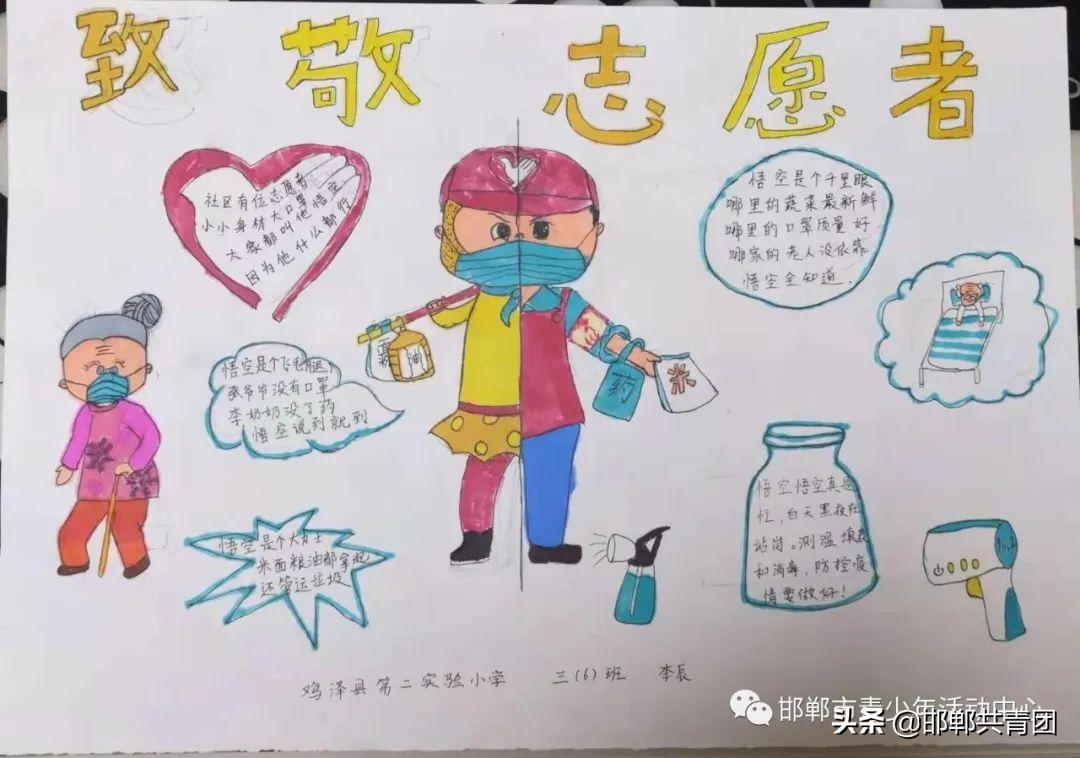 致敬志愿者
社区有位志愿者
小小身材大口罩
大家都叫他悟空
因为他什么都行
悟空是个千里眼
哪里的蔬菜最新鲜
哪里的口罩质量好
哪家的老人没依靠
悟空全知道.
悟空是个飞毛腿
张爷爷没有口罩
李奶奶没了药
悟空说到就到
面
油
药
米
悟空是个大力士
米面粮油都拿起
还管运垃圾
悟空悟空真是
忙,白天黑夜在
站岗。测温填表
和消毒,防控疫
情要做好!
鸡泽县第二实验小学 三(6)班 李辰
邯郸市青少年活动中心
头条 @邯郸共青团